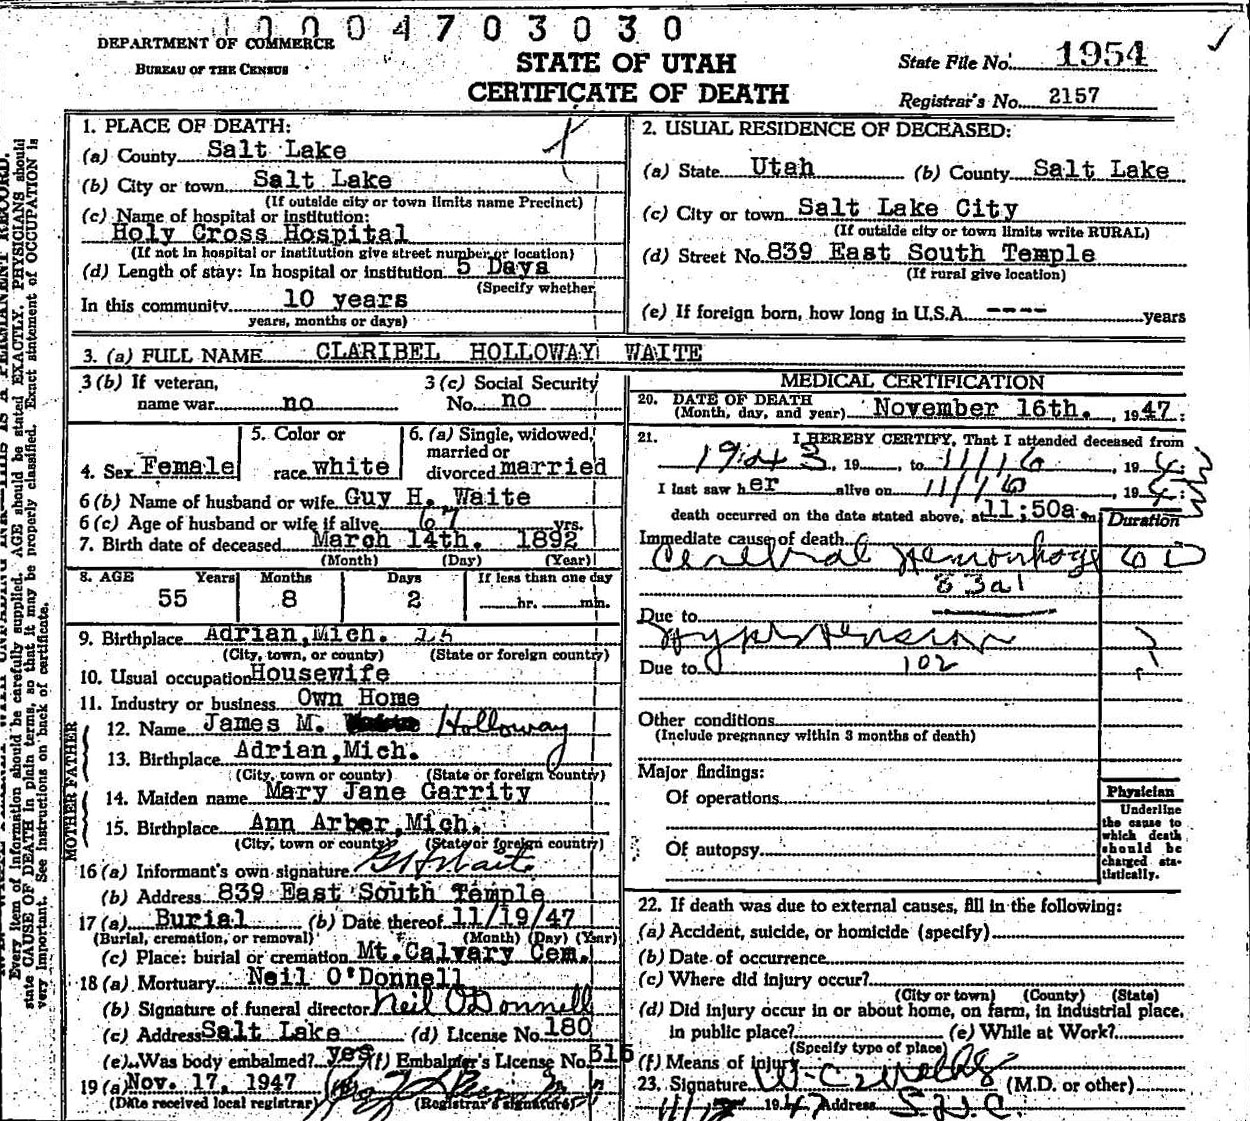 1 0 0 0 4 7 0 3 0 3 0
DEPARTMENT OF COMMERCE
BUREAU OF THE CENSUS
STATE OF UTAH
CERTIFICATE OF DEATH
State File No. 1954
Registrar's No. 2157
1. PLACE OF DEATH:
(a) County Salt Lake
(b) City or town Salt Lake
(If outside city or town limits name Precinct)
(c) Name of hospital or institution:
Holy Cross Hospital
(If not in hospital or institution give street number or location)
(d) Length of stay: In hospital or institution 5 Days
(Specify whether
In this community 10 years
years, months or days)
2. USUAL RESIDENCE OF DECEASED:
(a) State Utah (b) County Salt Lake
(c) City or town Salt Lake City
(If outside city or town limits write RURAL)
(d) Street No. 839 East South Temple
(If rural give location)
(e) If foreign born, how long in U.S.A. ---- years
3. (a) FULL NAME CLARIBEL HOLLOWAY WAITE
3 (b) If veteran, name war no
3 (c) Social Security No. no
4. Sex Female
5. Color or race white
6. (a) Single, widowed, married or divorced married
6 (b) Name of husband or wife Guy H. Waite
6 (c) Age of husband or wife if alive 67 yrs.
7. Birth date of deceased March 14th. 1892
(Month) (Day) (Year)
8. AGE Years Months Days If less than one day
55 8 2 hr. min.
9. Birthplace Adrian, Mich.
(City, town, or county) (State or foreign country)
10. Usual occupation Housewife
11. Industry or business Own Home
FATHER
12. Name James M. Holloway
13. Birthplace Adrian, Mich.
(City, town or county) (State or foreign country)
MOTHER
14. Maiden name Mary Jane Garrity
15. Birthplace Ann Arbor, Mich.
(City, town or county) (State or foreign country)
16 (a) Informant's own signature G H Waite
(b) Address 839 East South Temple
17 (a) Burial (b) Date thereof 11/19/47
(Burial, cremation, or removal) (Month) (Day) (Year)
(c) Place: burial or cremation Mt. Calvary Cem.
18 (a) Mortuary Neil O'Donnell
(b) Signature of funeral director Neil O'Donnell
(c) Address Salt Lake (d) License No. 180
(e) Was body embalmed? yes (f) Embalmer's License No. 316
19 (a) Nov. 17, 1947 (b)
(Date received local registrar) (Registrar's signature)
MEDICAL CERTIFICATION
20. DATE OF DEATH
(Month, day, and year) November 16th. , 1947.
21. I HEREBY CERTIFY, That I attended deceased from
1943, 19 , to 11/16 , 194
I last saw her alive on 11/16 , 194
death occurred on the date stated above, at 11:50a. m
Duration
Immediate cause of death
Cerebral Hemorrhage 6 D
83a1
Due to
Hypertension ?
Due to 102
Other conditions
(Include pregnancy within 3 months of death)
Major findings:
Of operations
Of autopsy
Physician
Underline
the cause to
which death
should be
charged sta-
tistically.
22. If death was due to external causes, fill in the following:
(a) Accident, suicide, or homicide (specify)
(b) Date of occurrence
(c) Where did injury occur?
(City or town) (County) (State)
(d) Did injury occur in or about home, on farm, in industrial place,
in public place? (e) While at Work?
(Specify type of place)
(f) Means of injury
23. Signature (M.D. or other)
1947 Address S.L.C.
RECORD.
Every item of information should be carefully supplied. AGE should be stated EXACTLY. PHYSICIANS should
state CAUSE OF DEATH in plain terms, so that it may be properly classified. Exact statement of OCCUPATION is
very important. See instructions on back of certificate.